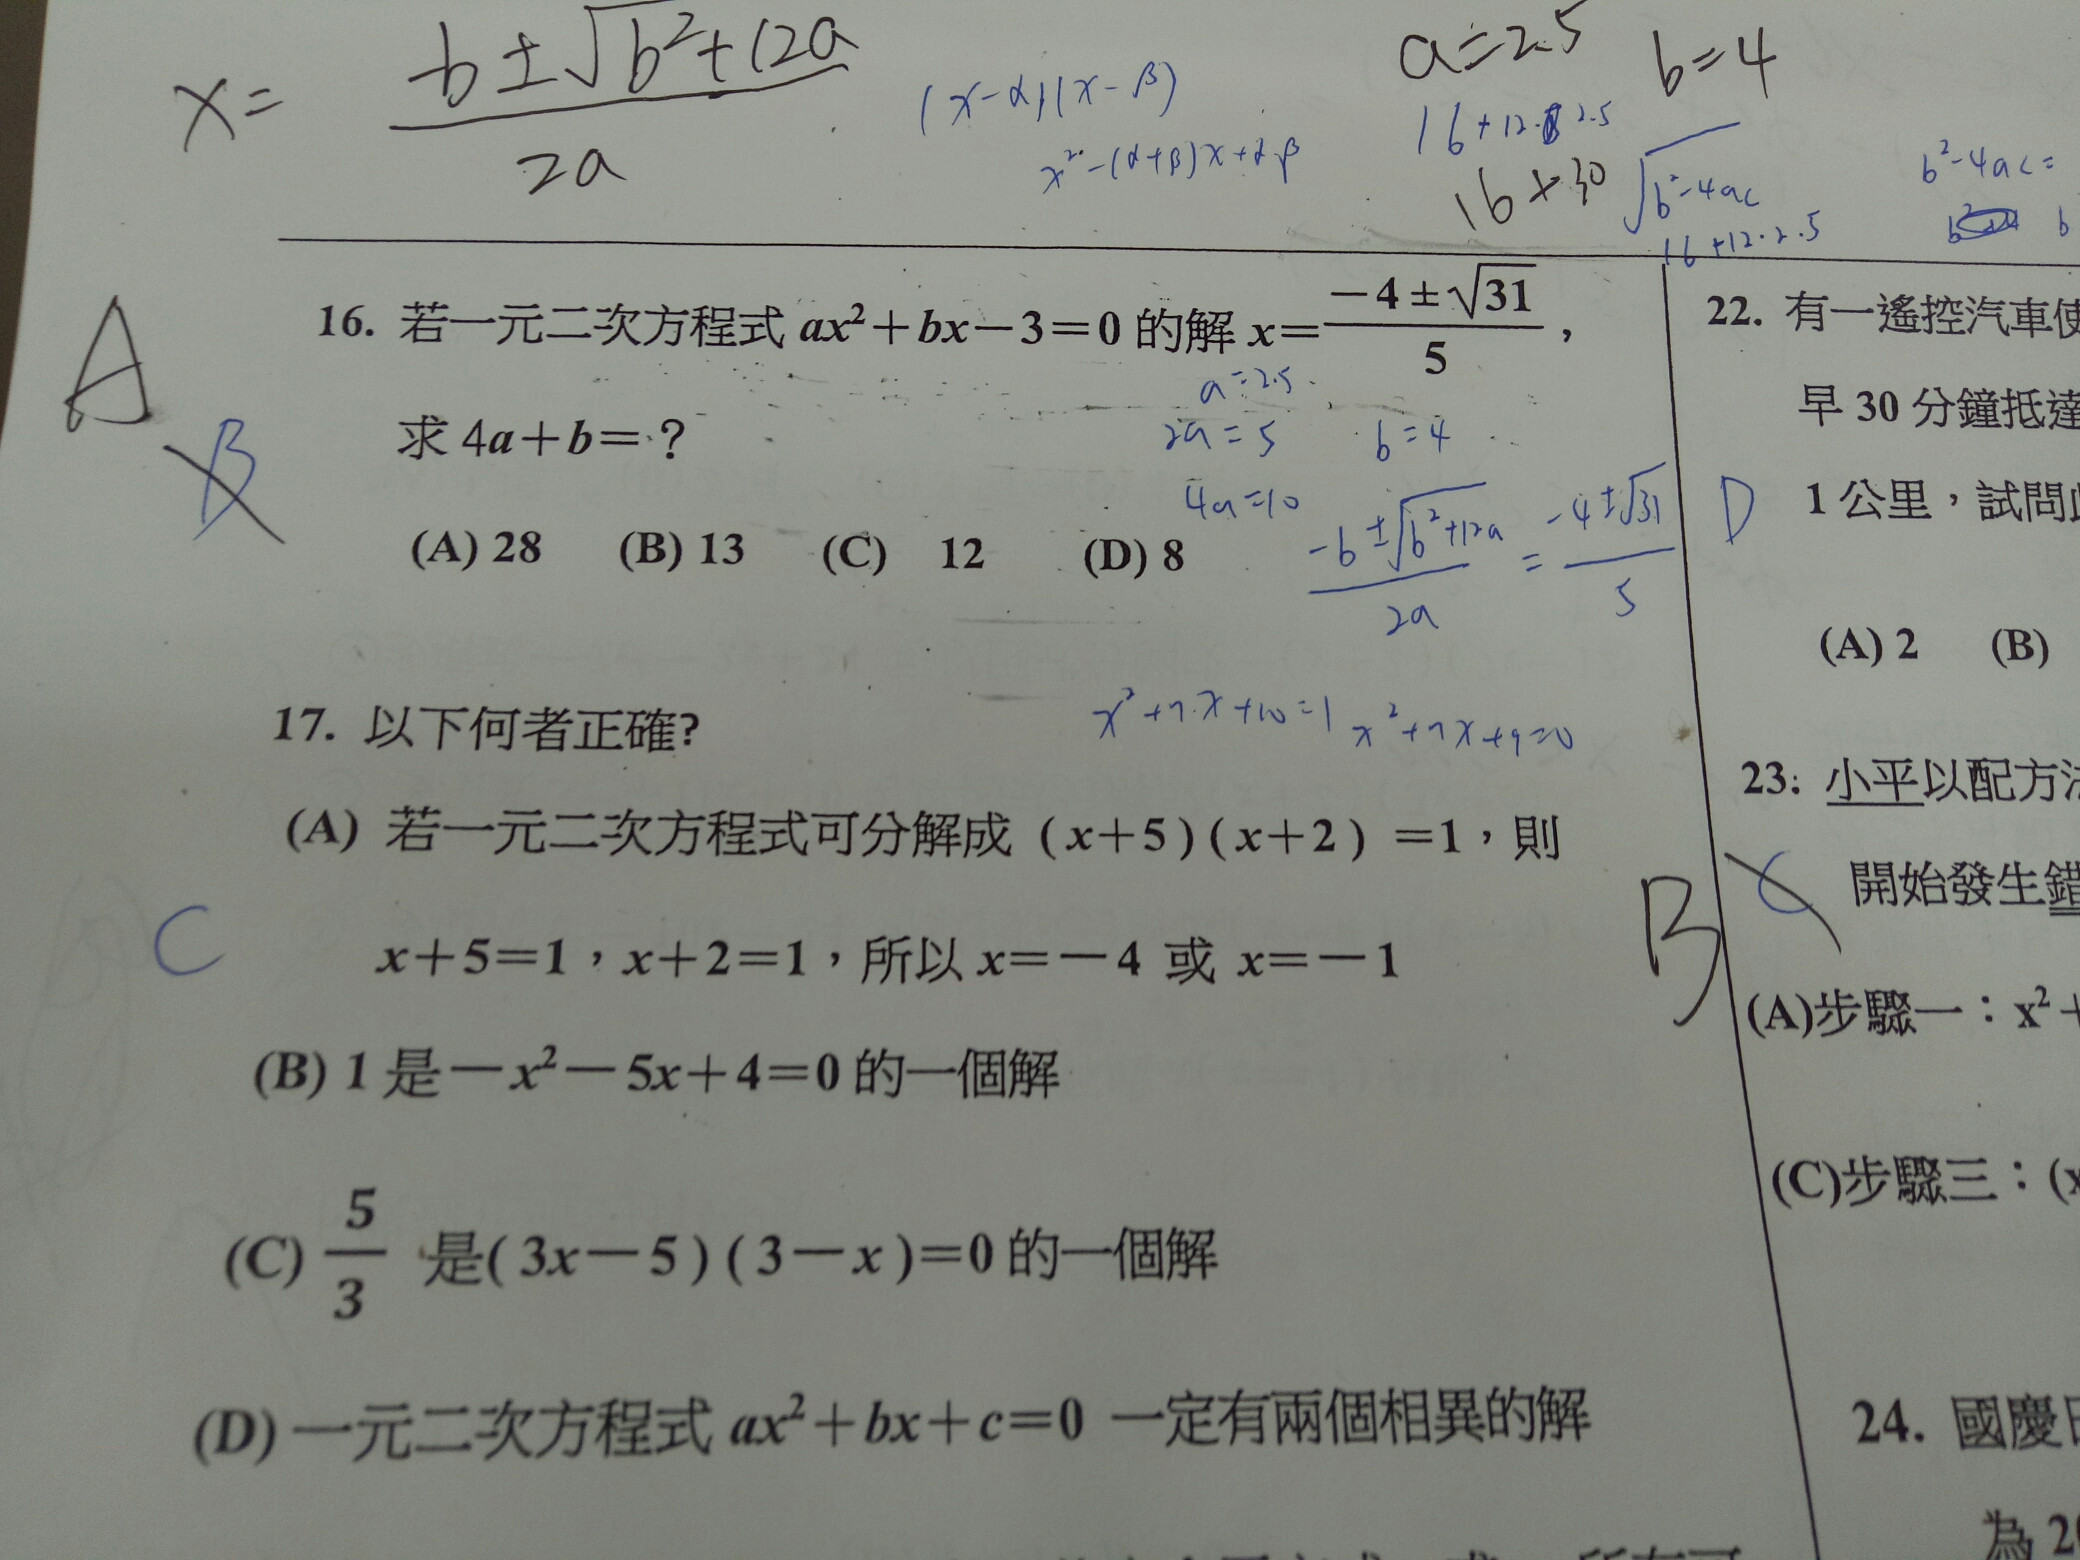 x = b ± √b²+12a / 2a
(x-α)(x-β)
x²-(α+β)x+α·β
a=2.5 b=4
16+12· 2.5
16×30
√b²-4ac
16+12·2.5
b²-4ac=
b² b
A
B
16. 若一元二次方程式 ax²+bx-3=0 的解 x= -4±√31 / 5 ,
求 4a+b= ?
a=2.5
2a=5 b=4
4a=10
(A) 28 (B) 13 (C) 12 (D) 8
-b±√b²+12a / 2a = -4±√31 / 5
17. 以下何者正確?
x²+7x+10=1 x²+7x+9=0
(A) 若一元二次方程式可分解成 (x+5)(x+2) =1,則
C
x+5=1,x+2=1,所以 x=-4 或 x=-1
(B) 1 是-x²-5x+4=0 的一個解
(C) 5/3 是(3x-5)(3-x)=0 的一個解
(D) 一元二次方程式 ax²+bx+c=0 一定有兩個相異的解
22. 有一遙控汽車使
早 30 分鐘抵達
D
1 公里,試問此
(A) 2 (B)
23: 小平以配方法
C
B
開始發生錯
(A)步驟一:x²+
(C)步驟三:(x
24. 國慶日
為 20